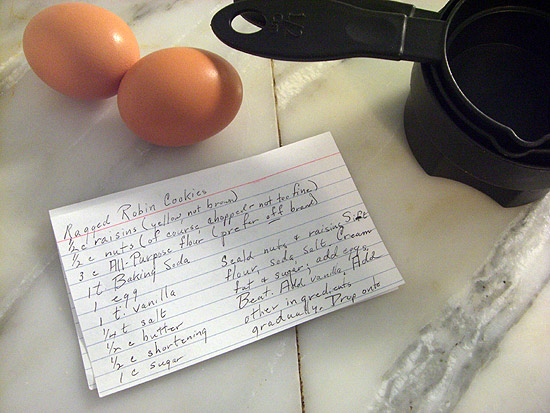 Ragged Robin Cookies
½ c raisins (yellow not brown)
½ c nuts (of course chopped - not too fine)
3 c All-Purpose flour (prefer off brand)
1 t Baking Soda
1 egg
1 t. vanilla
¼ t salt
½ c butter
½ c shortening
1 c sugar
Scald nuts & raisins Sift
flour, soda, salt. Cream
fat & sugar; add egg,
Beat. Add vanilla, Add
other ingredients
gradually. Drop onto